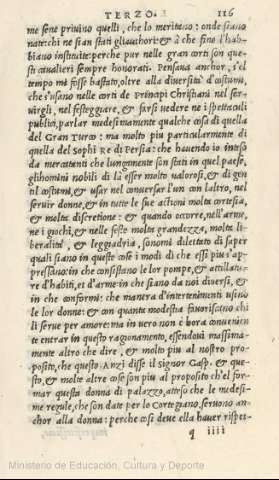 TERZO. 116
me sene privino quelli, che lo meritano: onde siano
nati: chi ne sian stati gliauthori: & à che fine l'hab
biano instituite: perche pur nelle gran corti son que
sti cavalieri sempre honorati. Pensava anchor, s'el
tempo mi fosse bastato, oltre alla diversità de costumi,
che s'usano nelle corti de Principi Christiani nel ser-
virgli, nel festeggiare, & farsi vedere ne i spettaculi
publici, parlar medesimamente qualche cosa di quella
del Gran Turco: ma molto piu particularmente di
quella del Sophi Re di Persia: che havendo io inteso
da mercatanti che lungamente son stati in quel paese,
glihomini nobili di là esser molto valorosi, & di gen
til costumi, & usar nel conversar l'un con laltro, nel
servir donne, & in tutte le sue actioni molta cortesia,
& molta discretione: & quando occorre, nell'arme,
ne i giochi, & nelle feste molta grandezza, molta li-
beralità, & leggiadria, sonomi dilettato di saper
quali siano in queste cose i modi di che essi piu s'ap
prezzano: in che consistano le lor pompe, & attillatu-
re d'habiti, et d'arme: in che siano da noi diversi, &
in che conformi: che manera d'intertenimenti usino
le lor donne: & con quanta modestia favoriscano chi
li serve per amore: ma in vero non è hora convenien
te entrar in questo ragionamento, essendovi massima-
mente altro che dire, & molto piu al nostro pro-
posito, che questo. Anzi disse il signor Gasp. & que-
sto, & molte altre cose son piu al proposito ch'el for-
mar questa donna di palazzo, atteso che le medesi-
me regule, che son date per lo Cortegiano, servono an
chor alla donna: perche cosi deve ella haver rispet-
q iiii
Ministerio de Educación, Cultura y Deporte